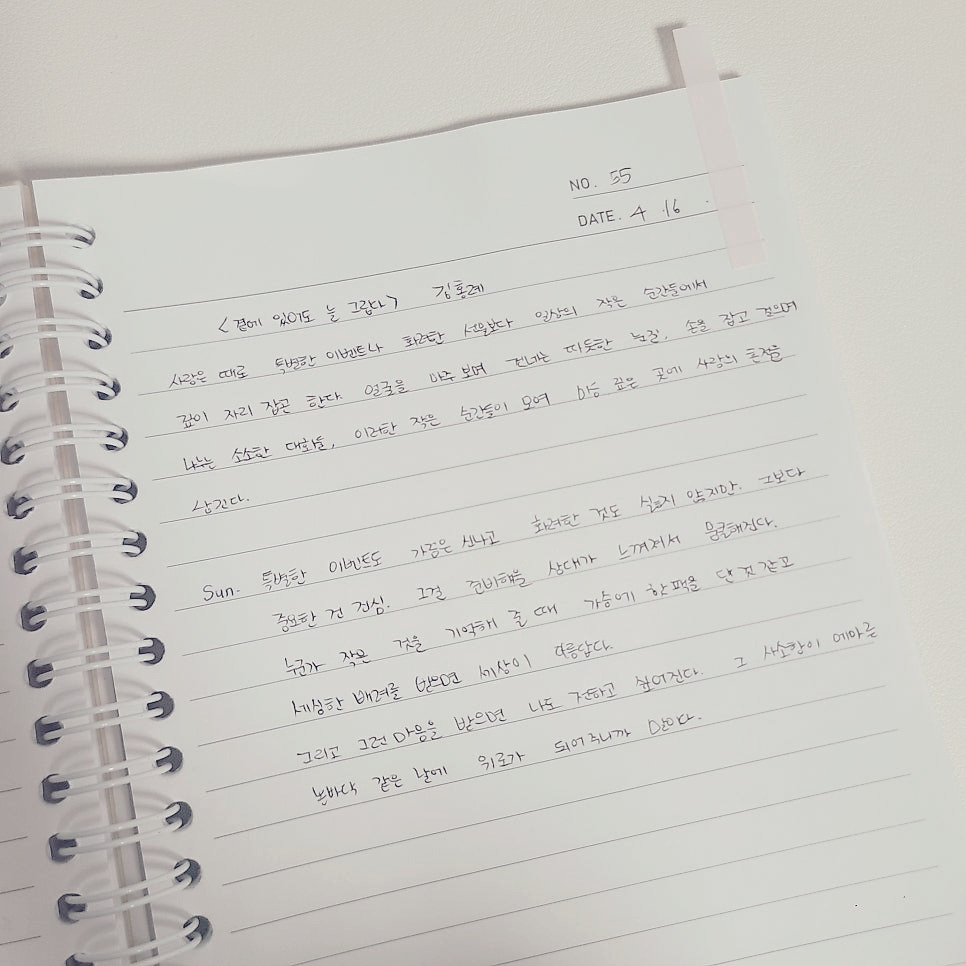 NO. 55
DATE. 4 .16 .
<곁에 있어도 늘 그립다> 김홍례
사랑은 때로 특별한 이벤트나 화려한 선물보다 일상의 작은 순간들에서
깊이 자리 잡곤 한다. 얼굴을 마주 보며 건네는 따듯한 눈길, 손을 잡고 걸으며
나누는 소소한 대화들, 이러한 작은 순간들이 모여 마음 깊은 곳에 사랑의 흔적을
남긴다.
Sun. 특별한 이벤트도 가끔은 신나고 화려한 것도 싫지 않지만. 그보다
중요한 건 진심. 그걸 준비해을 상대가 느껴져서 뭉클해진다.
누군가 작은 것을 기억해 줄 때 가슴에 핫팩을 단 것 같고
세심한 배려를 받으면 세상이 아름답다.
그리고 그런 마음을 받으면 나도 전하고 싶어진다. 그 사소함이 메마른
논바닥 같은 날에 위로가 되어주니까 말이다.